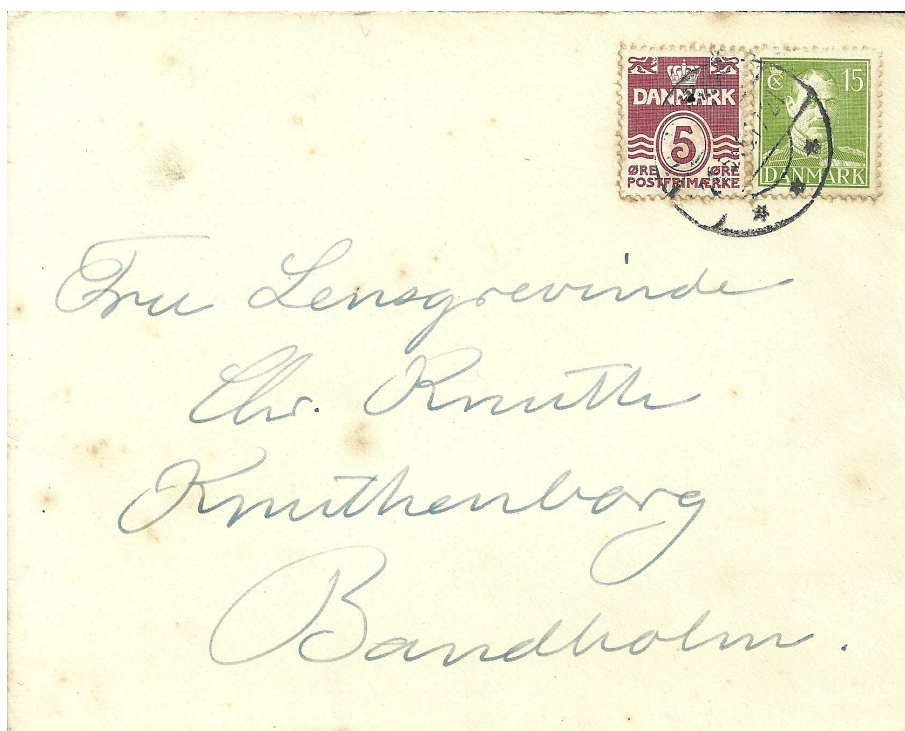 DANMARK
5
ØRE ØRE
POSTFRIMÆRKE
15
DANMARK
Fru Lensgrevinde
Chr. Knuth
Knuthenborg
Bandholm.